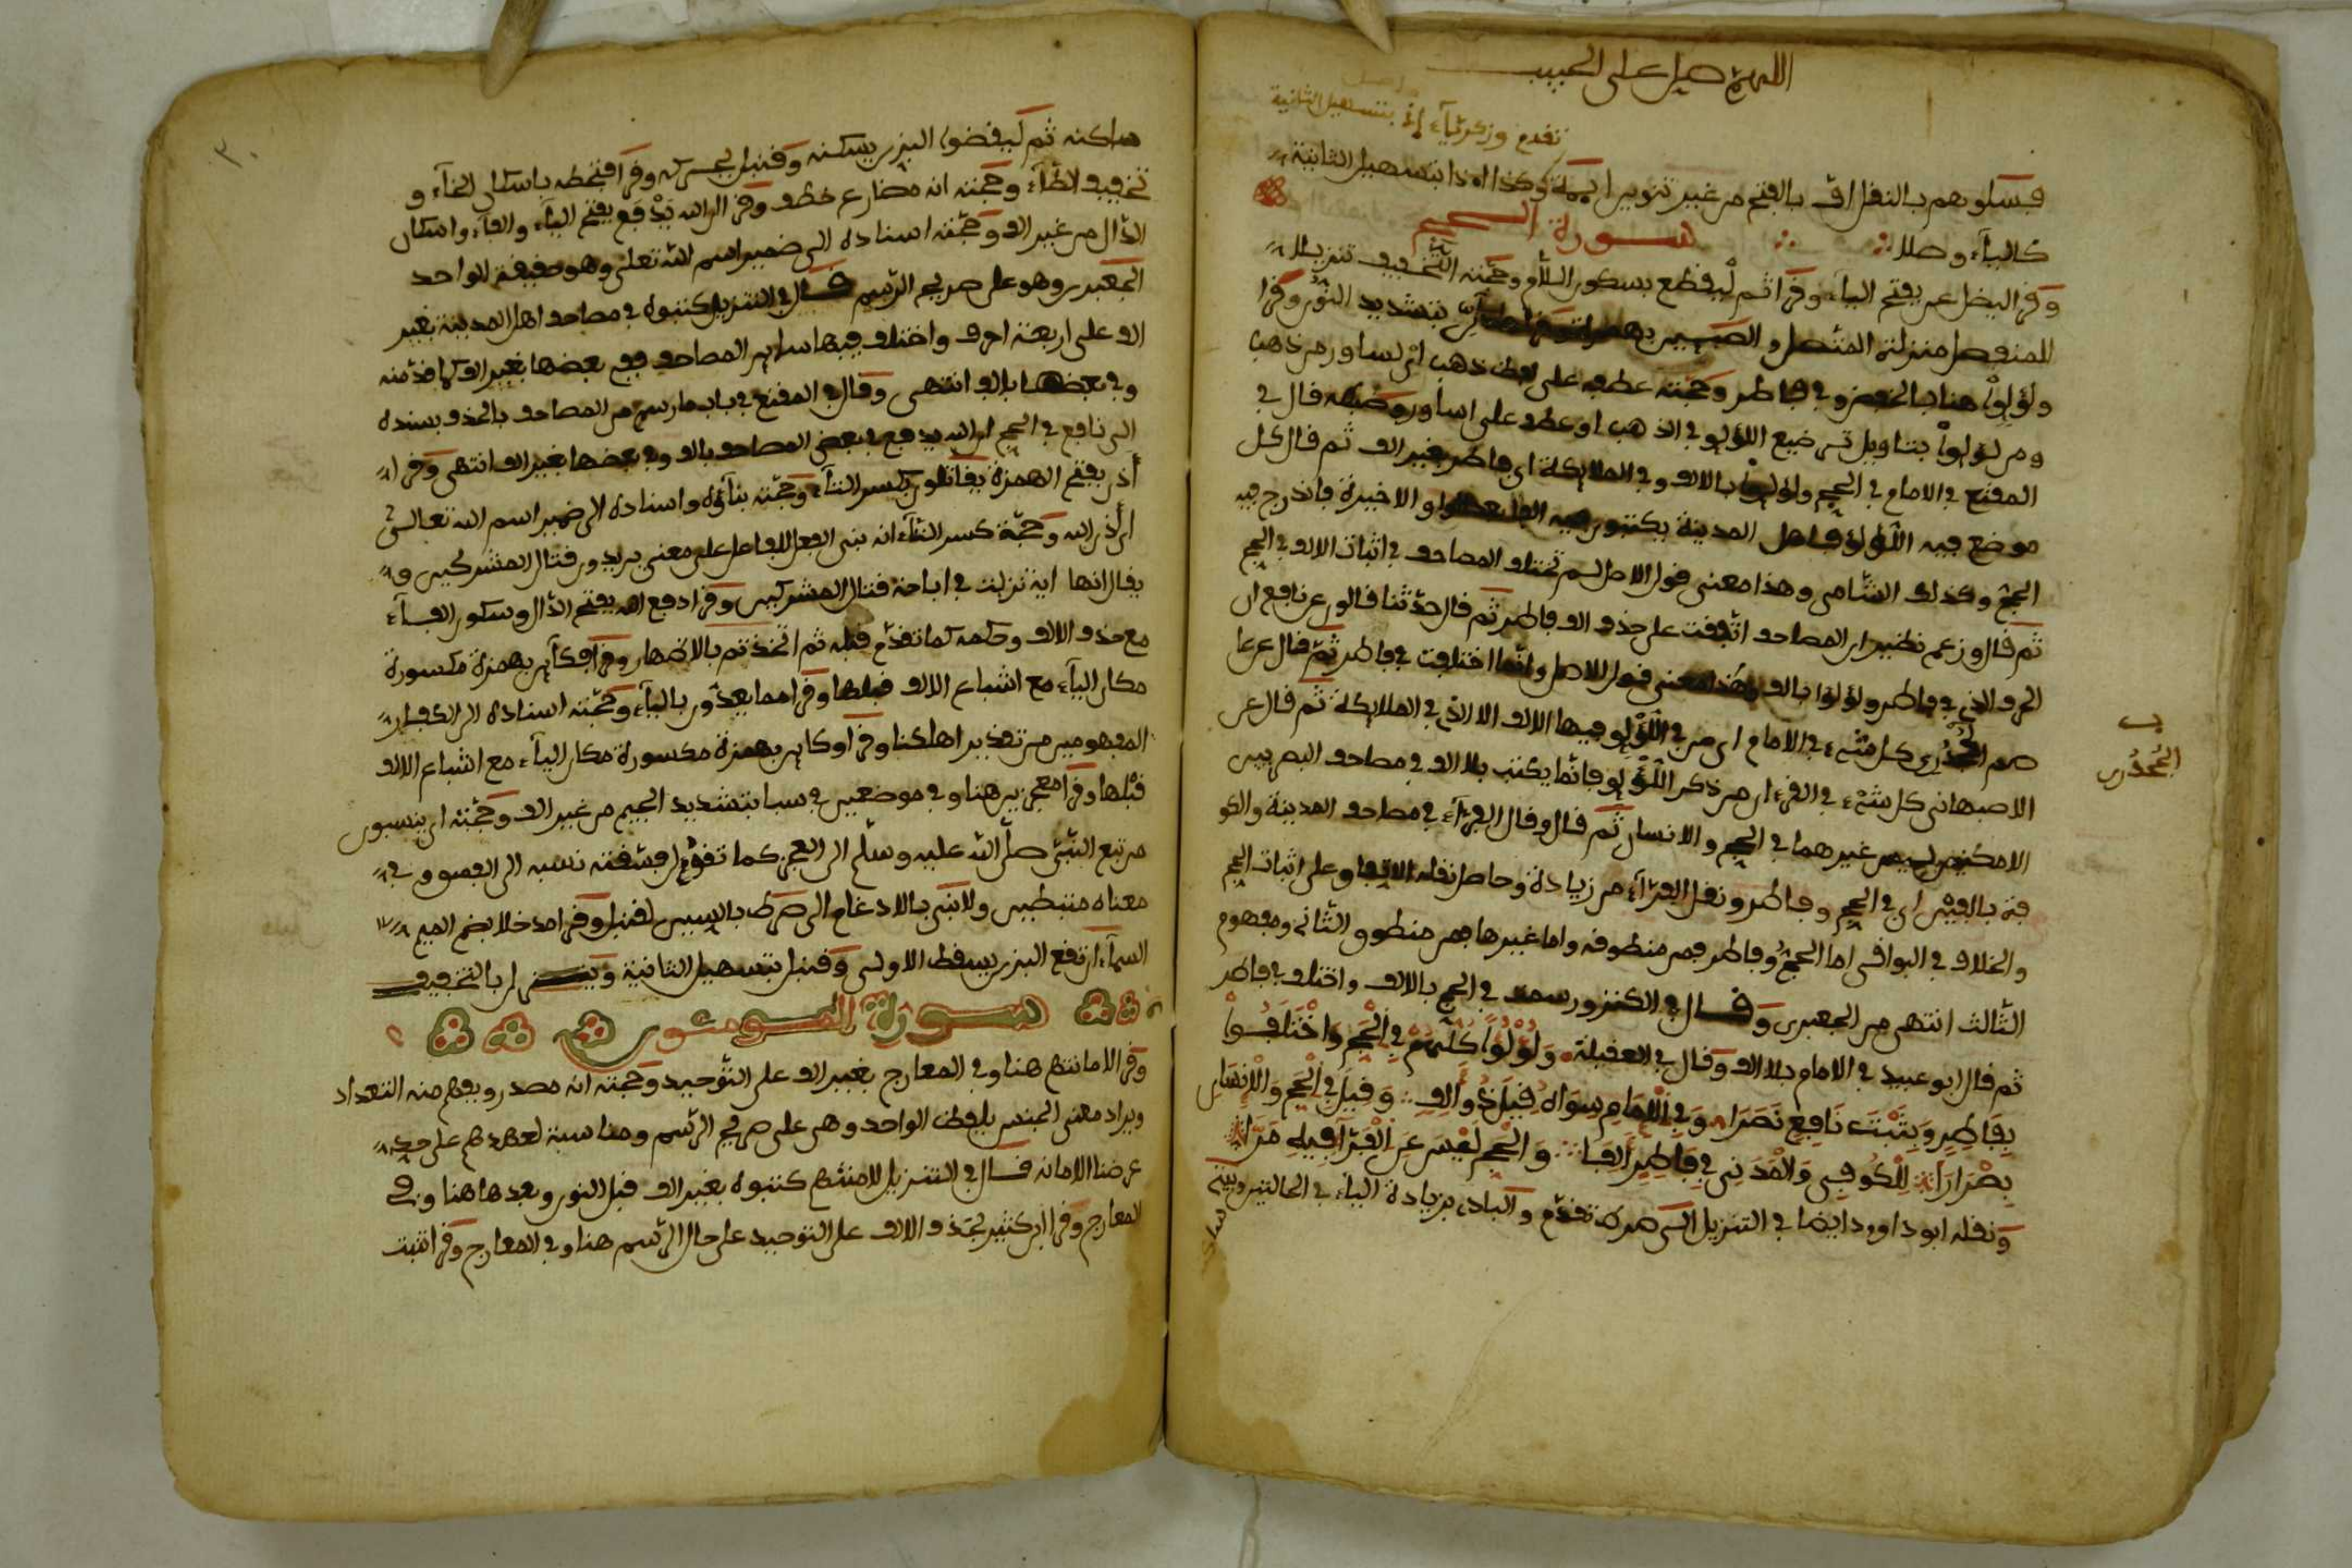 اللهم صل على الحبيب
تقدم وزكريآء إذ بتسهيل الثانية
فسلوهم بالنقل اف بالفتح من غير تنوين ايمة وكذا اذا بتسهيل الثانية
كالياء وصلا
سورة الحج
وقرا ليضل عن بفتح الياء وقرا ثم ليقطع بسكون اللام وحجته التخفيف تنزيلا
للمنفصل منزلة المتصل والصبين بتشديد النون وقرا
ولؤلؤا هنا بالخفض وفي فاطر وحجته عطفه على لفظ ذهب اي اساور من ذهب
ومن لؤلؤا بتاويل ترصيع اللؤلؤ في الذهب او عطف على اساور وضبطه قال في
المقنع في الامام في الحج ولؤلؤا بالالف وفي الملايكة اي فاطر بغير الف ثم قال كل
موضع فيه اللؤلؤ فاهل المدينة يكتبون فيه الفا بعد الواو الاخيرة فاندرج فيه
الحج وكذلك الشامي وهذا معنى قول الاصل لم تختلف المصاحف في اثبات الالف في الحج
ثم قال وزعم نظير ان المصاحف اتفقت على حذف الف فاطر ثم قال حدثنا قالون عن نافع ان
الحرف الذي في فاطر ولؤلؤا بالف وهذا معنى قول الاصل وانما اختلفت في فاطر ثم قال عن عا
صم الجحدري كل شيء في الامام اي من في اللؤلؤ فيها الالف الا الذي في الملايكة ثم قال عن
ب
الجحدري
الاصبهاني كل شيء في القرءان من ذكر اللؤلؤ فانما يكتب بلا الف في مصاحف البصريين
الا مكانين ليس غيرهما في الحج والانسان ثم قال وقال الفرآء في مصاحف المدينة والكو
فة بالفين اي في الحج وفاطر ونقل الفرآء من زيادة وحاصل نقله الاتفاق على اثبات الحج
والخلاف في البواقي اما الحج وفاطر فمن منطوقه واما غيرها فمن منطوق الثاني ومفهوم
الثالث انتهى من الجعبري وقال في الكنز ورسمت في الحج بالالف واختلف في فاطر
ثم قال ابو عبيد في الامام بلا الف وقال في العقيلة ولؤلؤا كلهم في الحج واختلفوا
بفاطر وبثبت نافع نصرا وفي الامام سواه قيل ذو الف وقيل في الحج والانسان
بصر ارا للكوفي والمدني في فاطر الفا والحج ليس عن الفرا فيه مرا
ونقله ابو داود ايضا في التنزيل الى صرط تقدم والباد بزيادة الياء في الحالتين وبيتي
ساكن
٣٠
ساكنه ثم ليقضوا البزي يسكنه وقنبل يحركه وقرا فتخطفه باسكان الخآء و
تخفيف الطآء وحجته انه مضارع خطف وقرا ان الله يدفع بفتح اليآء والفآء واسكان
الدال من غير الف وحجته اسناده الى ضمير اسم الله تعلى وهو حقيقة الواحد
الجعبري وهو على صريح الرسم قال في التنزيل كتبوه في مصاحف اهل المدينة بغير
الف على اربعة احرف واختلف فيها ساير المصاحف ففي بعضها بغير الف كما قدمته
وفي بعضها بالف انتهى وقال في المقنع في باب ما رسم من المصاحف بالحذف بسنده
الى نافع في الحج ان الله يدفع في بعض المصاحف بالف وفي بعضها بغير الف انتهى وقرا
أذن بفتح الهمزة يقاتلون بكسر التآء وحجته بنآؤه واسناده الى ضمير اسم الله تعالى
اي أذن الله وحجة كسر التآء انه بنى الفعل للفاعل على معنى يريدون قتال المشركين و
يقال انها اية نزلت في اباحة قتال المشركين وقرا دفع الله بفتح الدال وسكون الفآء
مع حذف الالف وحكمه كما تقدم قبله ثم اتخذتم بالاظهار وقرا فكآين بهمزة مكسورة
مكان اليآء مع اشباع الالف قبلها وقرا مما يعدون باليآء وحجته اسناده الى الكفار
المفهومين من تقدير اهلكنا وقرا وكاين بهمزة مكسورة مكان اليآء مع اشباع الالف
قبلها وقرا معجزين هنا وفي موضعين في سبا بتشديد الجيم من غير الف وحجته اي ينسبون
من تبع النبي صلى الله عليه وسلم الى العجز كما تقول فسقته نسبه الى الفسوق
معناه مثبطين ولا نبي بالادغام الى صرط بالسين لقنبل وقرا مدخلا بضم الميم
السمآء ان تقع البزي يسقط الاولى وقنبل بتسهيل الثانية وينزل بالتخفيف
سورة المومنون
وقرا لامانتهم هنا وفي المعارج بغير الف على التوحيد وحجته انه مصدر ويفهم منه التعداد
ويراد معنى الجنس بلفظ الواحد وهي على صريح الرسم ومناسبة لعهدهم على حد
عرضنا الامانة قال في التنزيل لامنتهم كتبوه بغير الف قبل النون وبعدها هنا وفي
المعارج وقرا ابن كثير بحذف الالف على التوحيد على حال الرسم هنا وفي المعارج وقرا تنبت